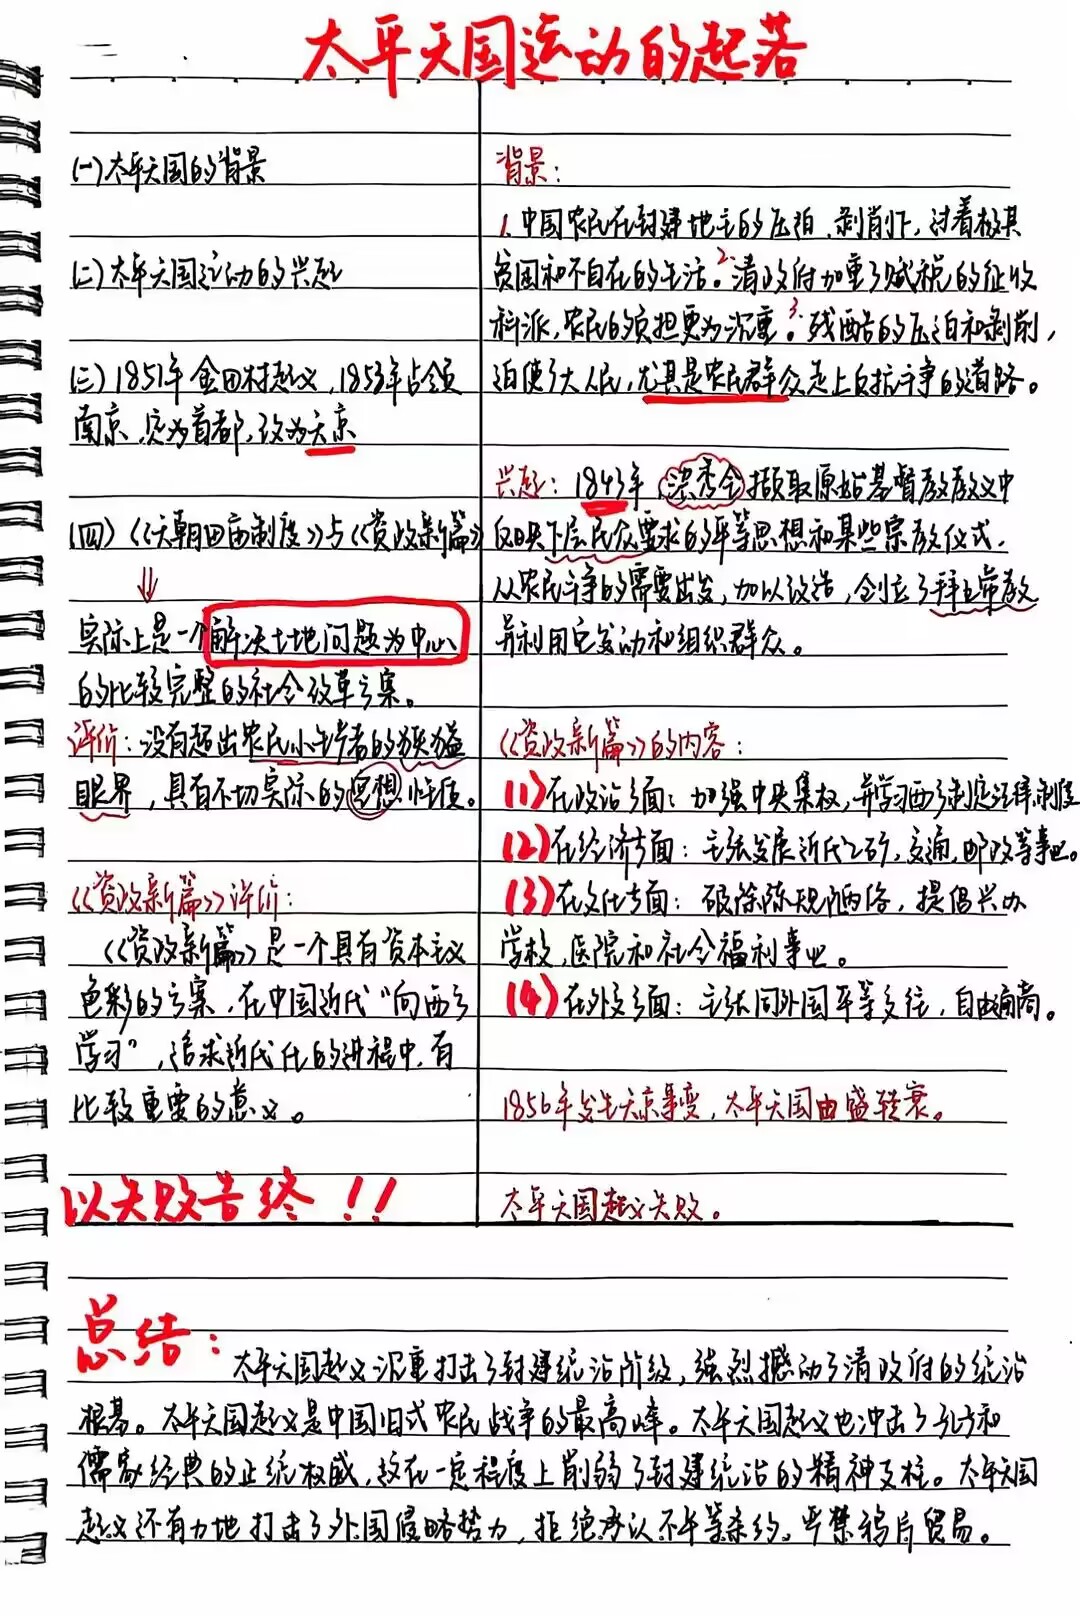 太平天国运动的起落
(一)太平天国的背景
(二)太平天国运动的兴起
(三)1851年金田村起义,1853年占领
南京,定为首都,改为天京
(四)《天朝田亩制度》与《资政新篇》
实际上是一个解决土地问题为中心
的比较完整的社会改革方案。
评价:没有超出农民小生产者的狭隘
眼界,具有不切实际的空想性质。
《资政新篇》评价:
《资政新篇》是一个具有资本主义
色彩的方案,在中国近代“向西方
学习”,追求近代化的进程中,有
比较重要的意义。
以失败告终!!
背景:
1、中国农民在封建地主的压迫、剥削下,过着极其
贫困和不自在的生活。2、清政府加重了赋税的征收
科派,农民的负担更为沉重。3、残酷的压迫和剥削,
迫使了大人民,尤其是农民群众走上反抗斗争的道路。
兴起:1843年,洪秀全撷取原始基督教教义中
反映下层民众要求的平等思想和某些宗教仪式,
从农民斗争的需要出发,加以改造,创立了拜上帝教
并利用它发动和组织群众。
《资政新篇》的内容:
(1)在政治方面:加强中央集权,并学习西方制定法律制度
(2)在经济方面:主张发展近代工矿,交通,邮政等事业。
(3)在文化方面:破除陈规陋俗,提倡兴办
学校,医院和社会福利事业。
(4)在外交方面:主张同外国平等交往,自由通商。
1856年发生天京事变,太平天国由盛转衰。
太平天国起义失败。
总结:
太平天国起义沉重打击了封建统治阶级,强烈撼动了清政府的统治
根基。太平天国起义是中国旧式农民战争的最高峰。太平天国起义也冲击了孔子和
儒家经典的正统权威,故在一定程度上削弱了封建统治的精神支柱。太平天国
起义还有力地打击了外国侵略势力,拒绝承认不平等条约。严禁鸦片贸易。